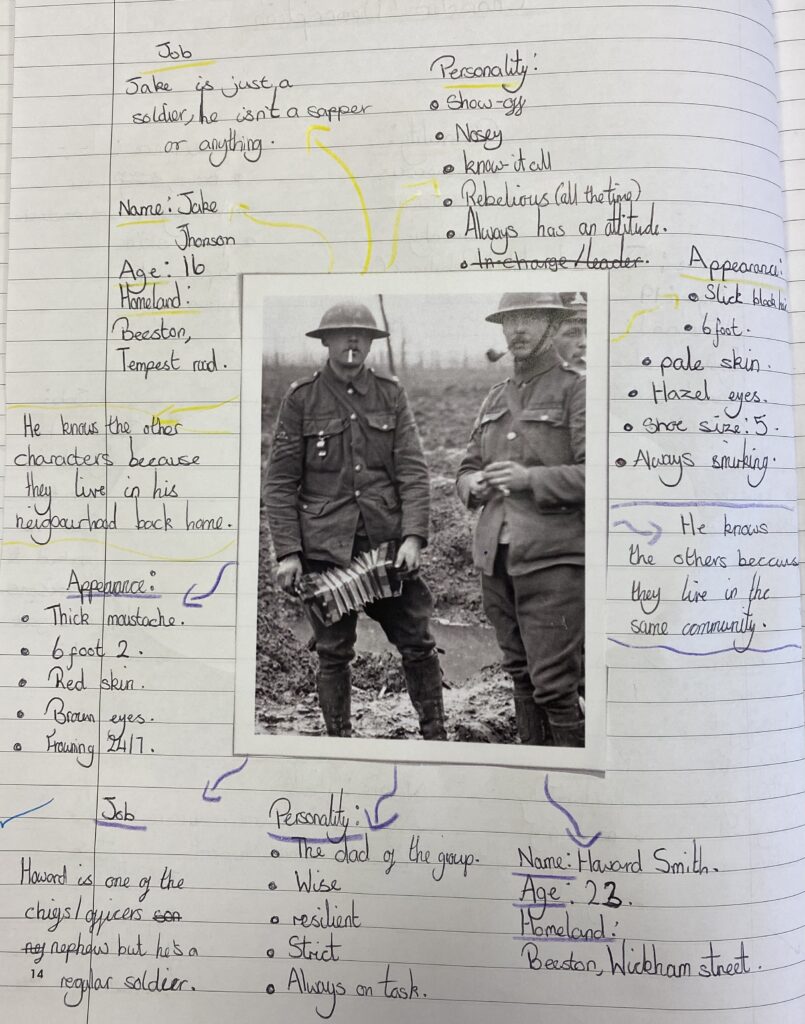 Job
Jake is just a
soldier, he isn't a sapper
or anything.
Personality:
• Show-off
• Nosey
• know-it all
• Rebelious (all the time)
• Always has an attitude.
• In-charge/leader.
Name: Jake
Jhonson
Age: 16
Homeland:
Beeston,
Tempest road.
Appearance:
• Slick black hai
• 6 foot.
• pale skin.
• Hazel eyes.
• Shoe size: 5.
• Always smirking.
He knows the other
characters because
they live in his
neigbourhood back home.
He knows
the others becaus
they live in the
same community.
Appearance:
• Thick moustache.
• 6 foot 2.
• Red skin.
• Brown eyes.
• Frowning 24/7.
Job
Howard is one of the
chiefs/officers son
ney nephew but he's a
regular soldier.
14
Personality:
• The dad of the group.
• Wise
• resilient
• Strict
• Always on task.
Name: Haward Smith.
Age: 23.
Homeland:
Beeston, Wickham street.